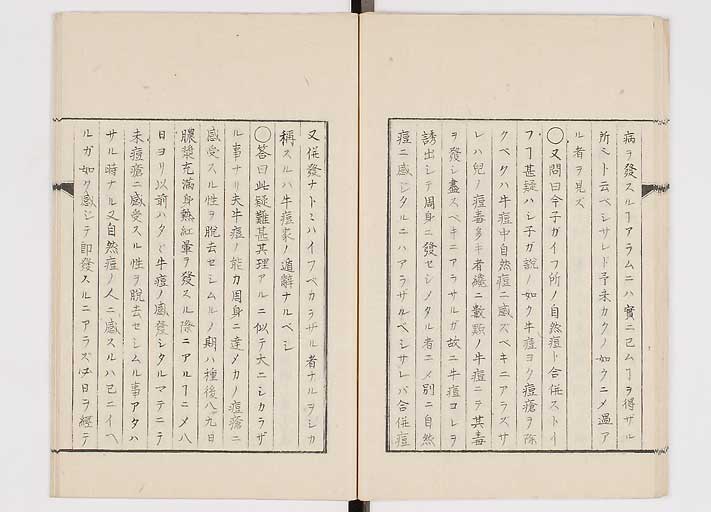 病ヲ發スルヿアラムニハ實ニ已ムヿヲ得ザル
所ミト云ベシサレド予未カクノ如ウニメ過ア
ル者ヲ見ズ
◯又問曰今子ガイフ所ノ自然痘ト合併ストイ
フヿ甚疑ハシ子ガ說ノ如ク牛痘ヨク痘瘡ヲ除
クベクハ牛痘中自然痘ニ感ズベキニアラズサ
レハ兒ノ痘毒多キ者纔ニ數顆ノ牛痘ニテ其毒
ヲ發シ盡スベキニアラサルガ故ニ牛痘コレヲ
誘出シテ周身ニ發セシメタル者ニメ別ニ自然
痘ニ感ジタルニハアラザルベシサレバ合併痘
又併發ナトヽハイフベカラザル者ナルヲシカ
稱スルハ牛痘家ノ遁辭ナルベシ
◯答曰此疑難甚其理アルニ似テ大ニシカラザ
ル事ナリ夫牛痘ノ能力周身ニ達メカノ痘瘡ニ
感受スル性ヲ脫去セシムルノ期ハ種後八九日
膿漿充滿身熱紅暈ヲ發スル際ニアルヿニメ八
日ヨリ以前ハタトヒ牛痘ノ感發シタルマテニテ
未痘瘡ニ感受スル性ヲ脫去セシムル事アタハ
サル時ナル又自然痘ノ人ニ感スルハ已ニイヘ
ルガ如ク感ジテ卽發スルニアラズ必日ヲ經テ